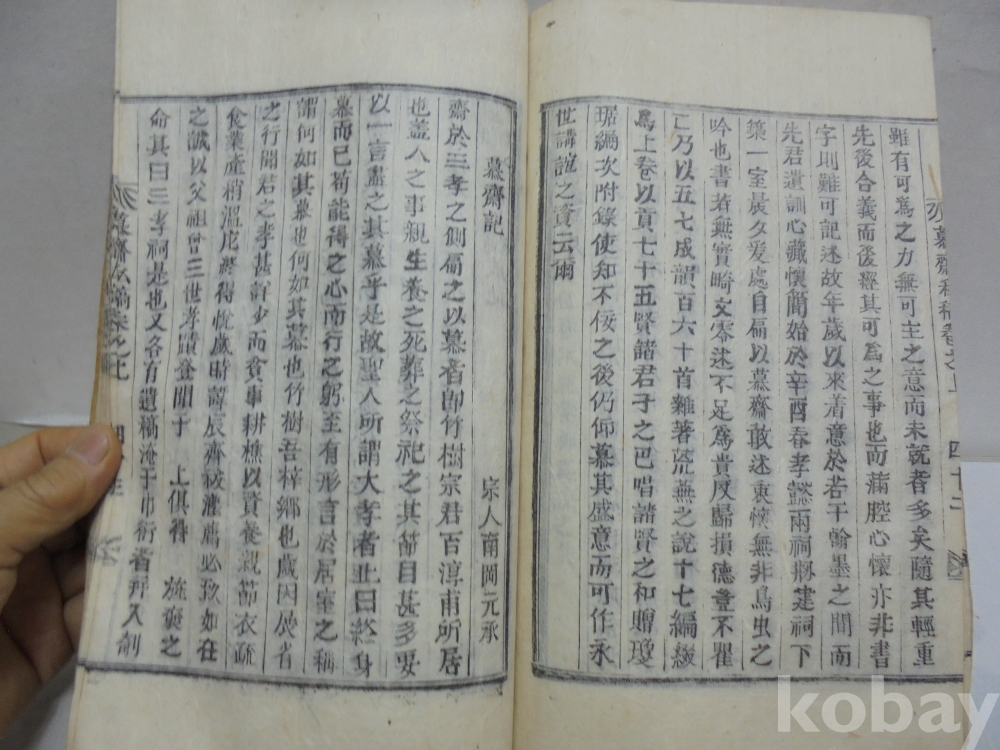 雖有可爲之力無可主之意而未就者多矣隨其輕重
先後合義而後經其可爲之事也而滿腔心懷亦非書
字則難可記述故年歲以來着意於若干翰墨之間而
先君遺訓心藏懷簡始於辛酉春孝懿兩祠搠建祠下
築一室晨夕爰處自扁以慕齋敢述衷懷無非鳥虫之
吟也書若無實畸文零述不足爲貴反歸損德
乃以五七成韻百六十首雜著荒蕪之說十七編綴
爲上卷以貢七十五賢諸君子之已唱諸賢之和贈瓊
琚編次附錄使知不佞之後仍仰慕其盛意而可作永
世講誼之資云爾
慕齋私稿卷之上
四十二
慕齋記
宗人南岡元承
齋於三孝之側扁之以慕者卽竹樹宗君百淳甫所居
也盖人之事親生養之死葬之祭祀之其節目甚多要
以一言盡之其慕乎是故聖人所謂大孝者此曰終身
慕而已苟能得之心而行之躬至有形言於居室之稱
謂何如其慕也何如其慕也竹樹吾梓鄉也歲因展省
之行聞君之孝甚詳少而貧事耕樵以資養親節衣疏
食業產稍溫庀將得悅歲時諱辰齊祓灌薦必致如在
之誠以父祖曾三世孝蹟登聞于 上俱得 旌褒之
命其曰三孝祠是也又各有遺稿淹于巾衍者幷入剞